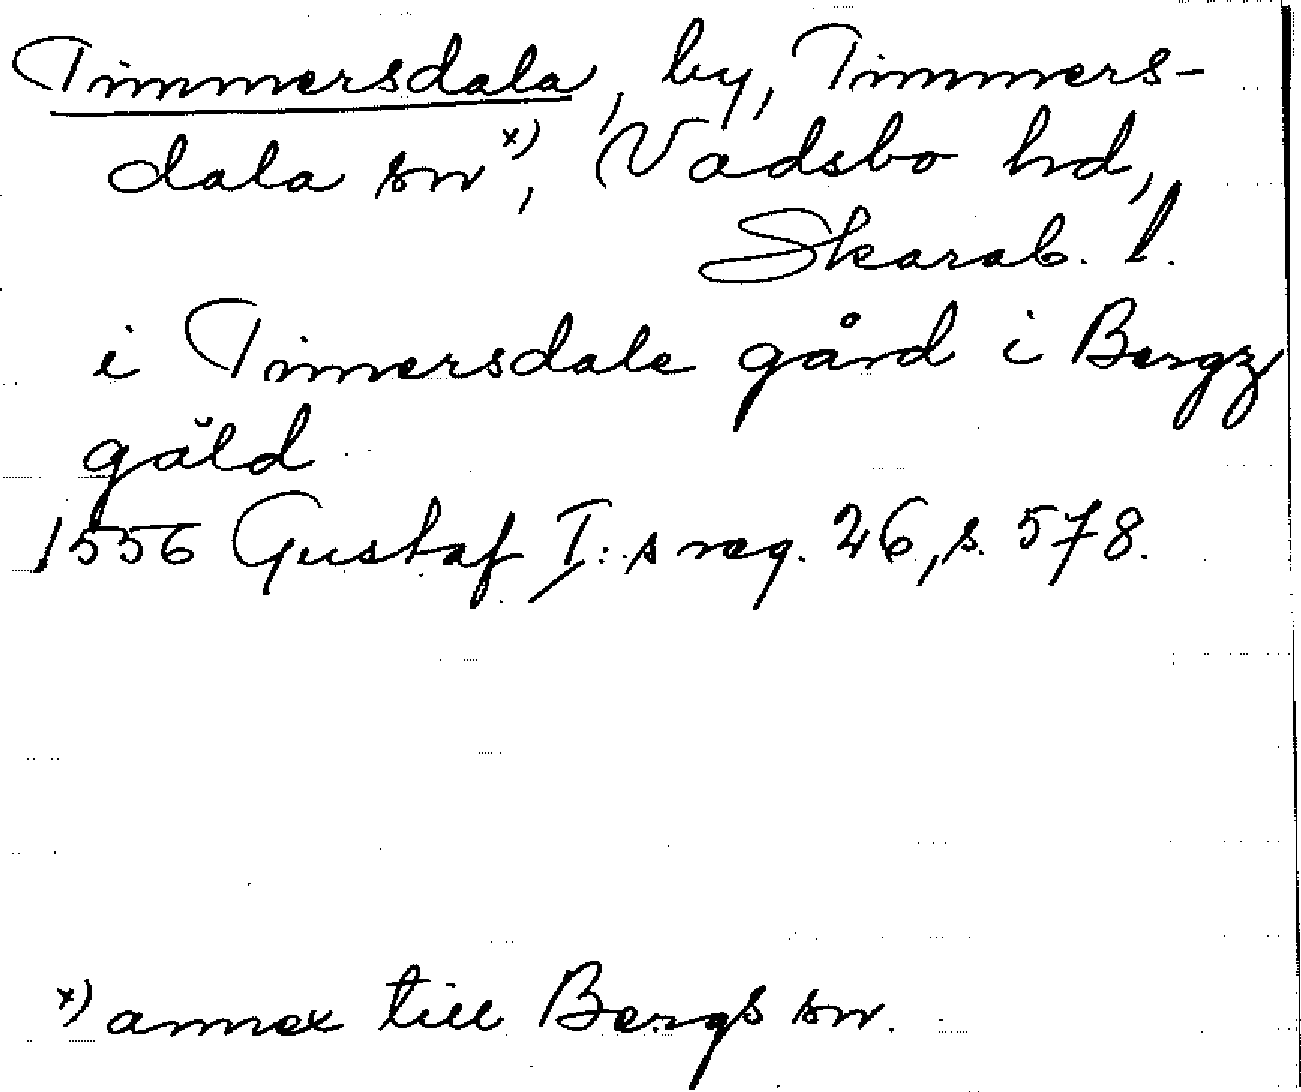 Timmersdala, by, Timmers-
dala sn x), Vadsbo hd,
Skarab. l.
i Timersdale gård i Bergz
gäld
1556 Gustaf I:s reg. 26, s. 578.
x) annex till Bergs sn.